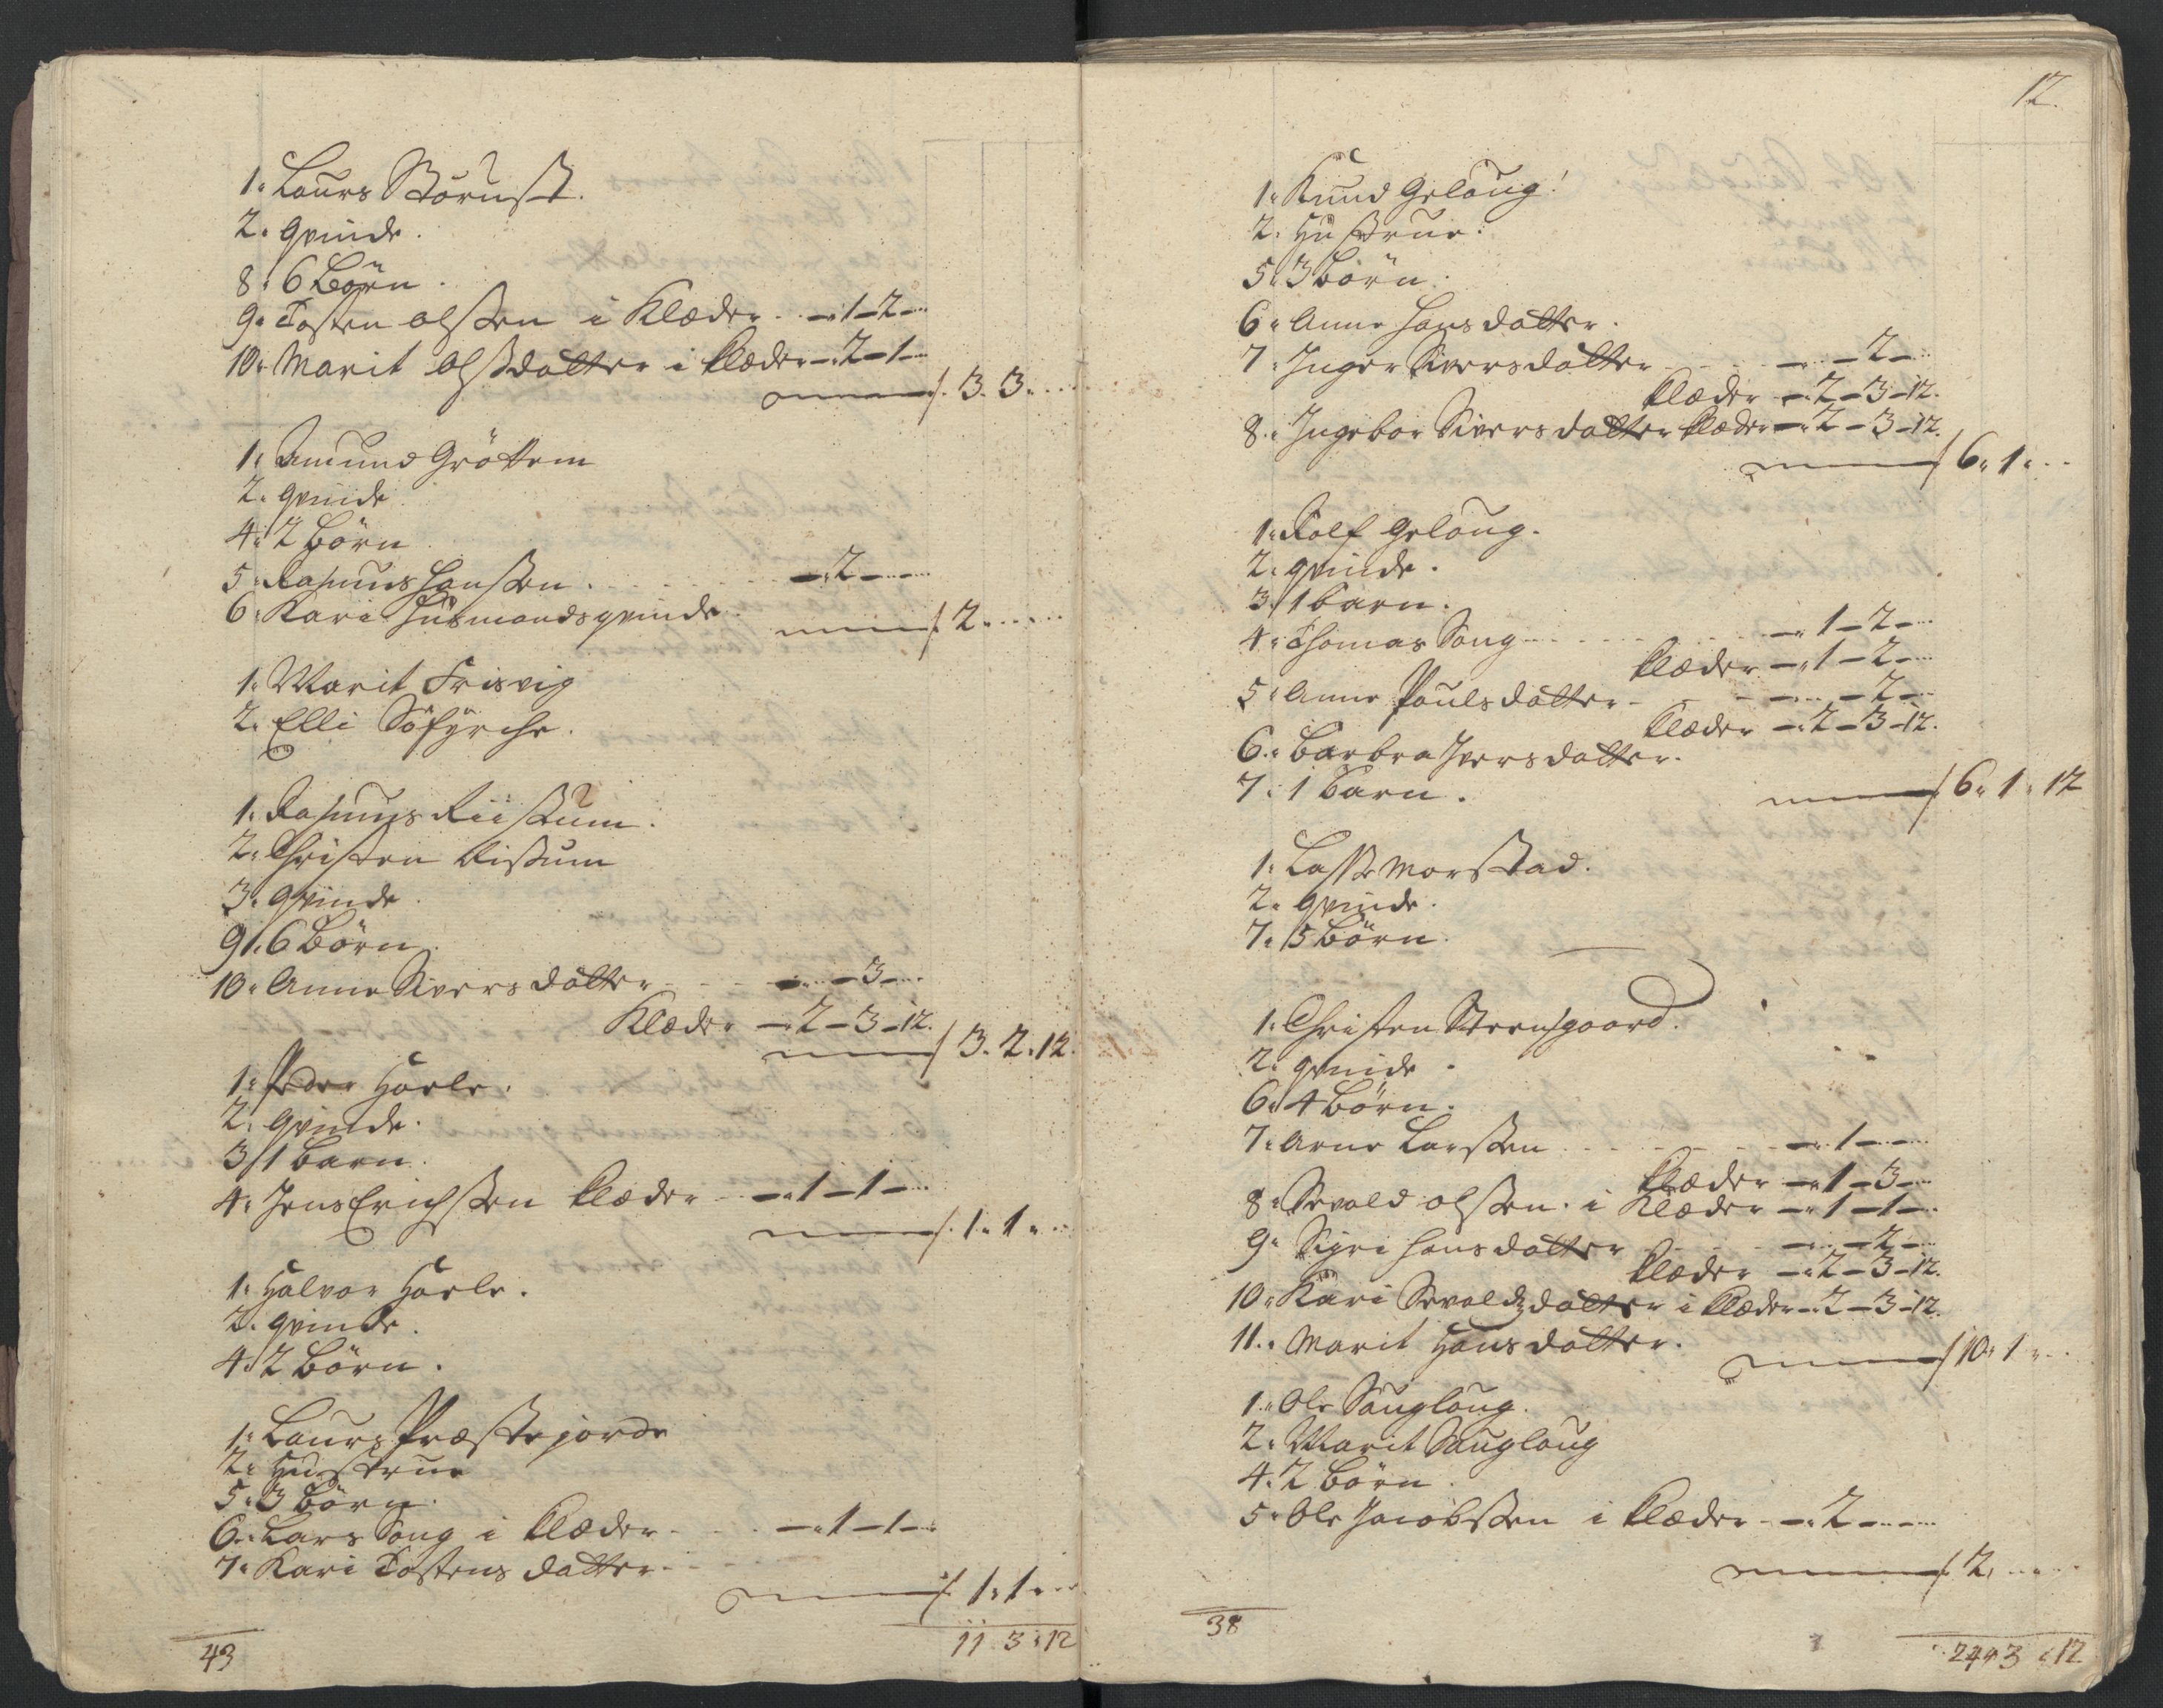 1. Laurs Störust.
2. qvinde.
8. 6 Börn.
9. Tosten olssen i Klæder - 1 - 2 -
10. Marit olssdatter i klæder - 2 - 1 -
3. 3.
1. Amund Gröttem
2. qvinde
4. 2 börn
5. Rasmus Hanssen. - 2 -
6. Kari Huusmands qvinde
2.
1. Marit Frisvig
2. Elli
1. Rasmus Riissum.
2. Christen Rissum
3. qvinde
9. 6 Börn.
10. Anne Siversdatter - 3 -
Klæder - 2 - 3 - 12.
3. 2. 12.
1. Peder Harle.
2. qvinde.
3. 1 barn.
4. Jens Erichssen klæder - 1 - 1 -
1. 1.
1. Halvor Harle.
2. qvinde.
4. 2 börn.
1. Laurs Præstejorde
2. Hustrue
5. 3 börn.
6. Lars Song i klæder - 1 - 1 -
7. Kari Tostens datter
1. 1.
43
11. 3. 12
12.
1. Knud Gelaug.
2. Hustrue.
5. 3 börn.
6. Anne Hansdatter.
7. Inger Siversdatter - 2 -
klæder - 2 - 3 - 12.
8. Ingebor Siversdatter klæder - 2 - 3 - 12.
6. 1.
1. Rolf Gelaug.
2. qvinde.
3. 1 barn.
4. Thomas Song - 1 - 2 -
klæder - 1 - 2 -
5. Anne Paulsdatter - 2 -
klæder - 2 - 3 - 12.
6. Barbra Iversdatter.
7. 1 barn.
6. 1. 12
1. Lasse Morstad.
2. qvinde.
7. 5 börn.
1. Christen Steensgaard.
2. qvinde.
6. 4 börn.
7. Arne Larssen - 1 -
klæder - 1 - 3 -
8. Sevald olssen. i Klæder - 1 - 1 -
9. Sigri Hansdatter - 2 -
klæder - 2 - 3 - 12.
10. Kari Sevaldsdatter i klæder - 2 - 3 - 12.
11. Marit Hansdatter.
10. 1.
1. Ole Sauglaug.
2. Marit Sauglaug
4. 2 börn.
5. Ole Jacobssen i klæder - 2 -
2.
38
24. 3. 12